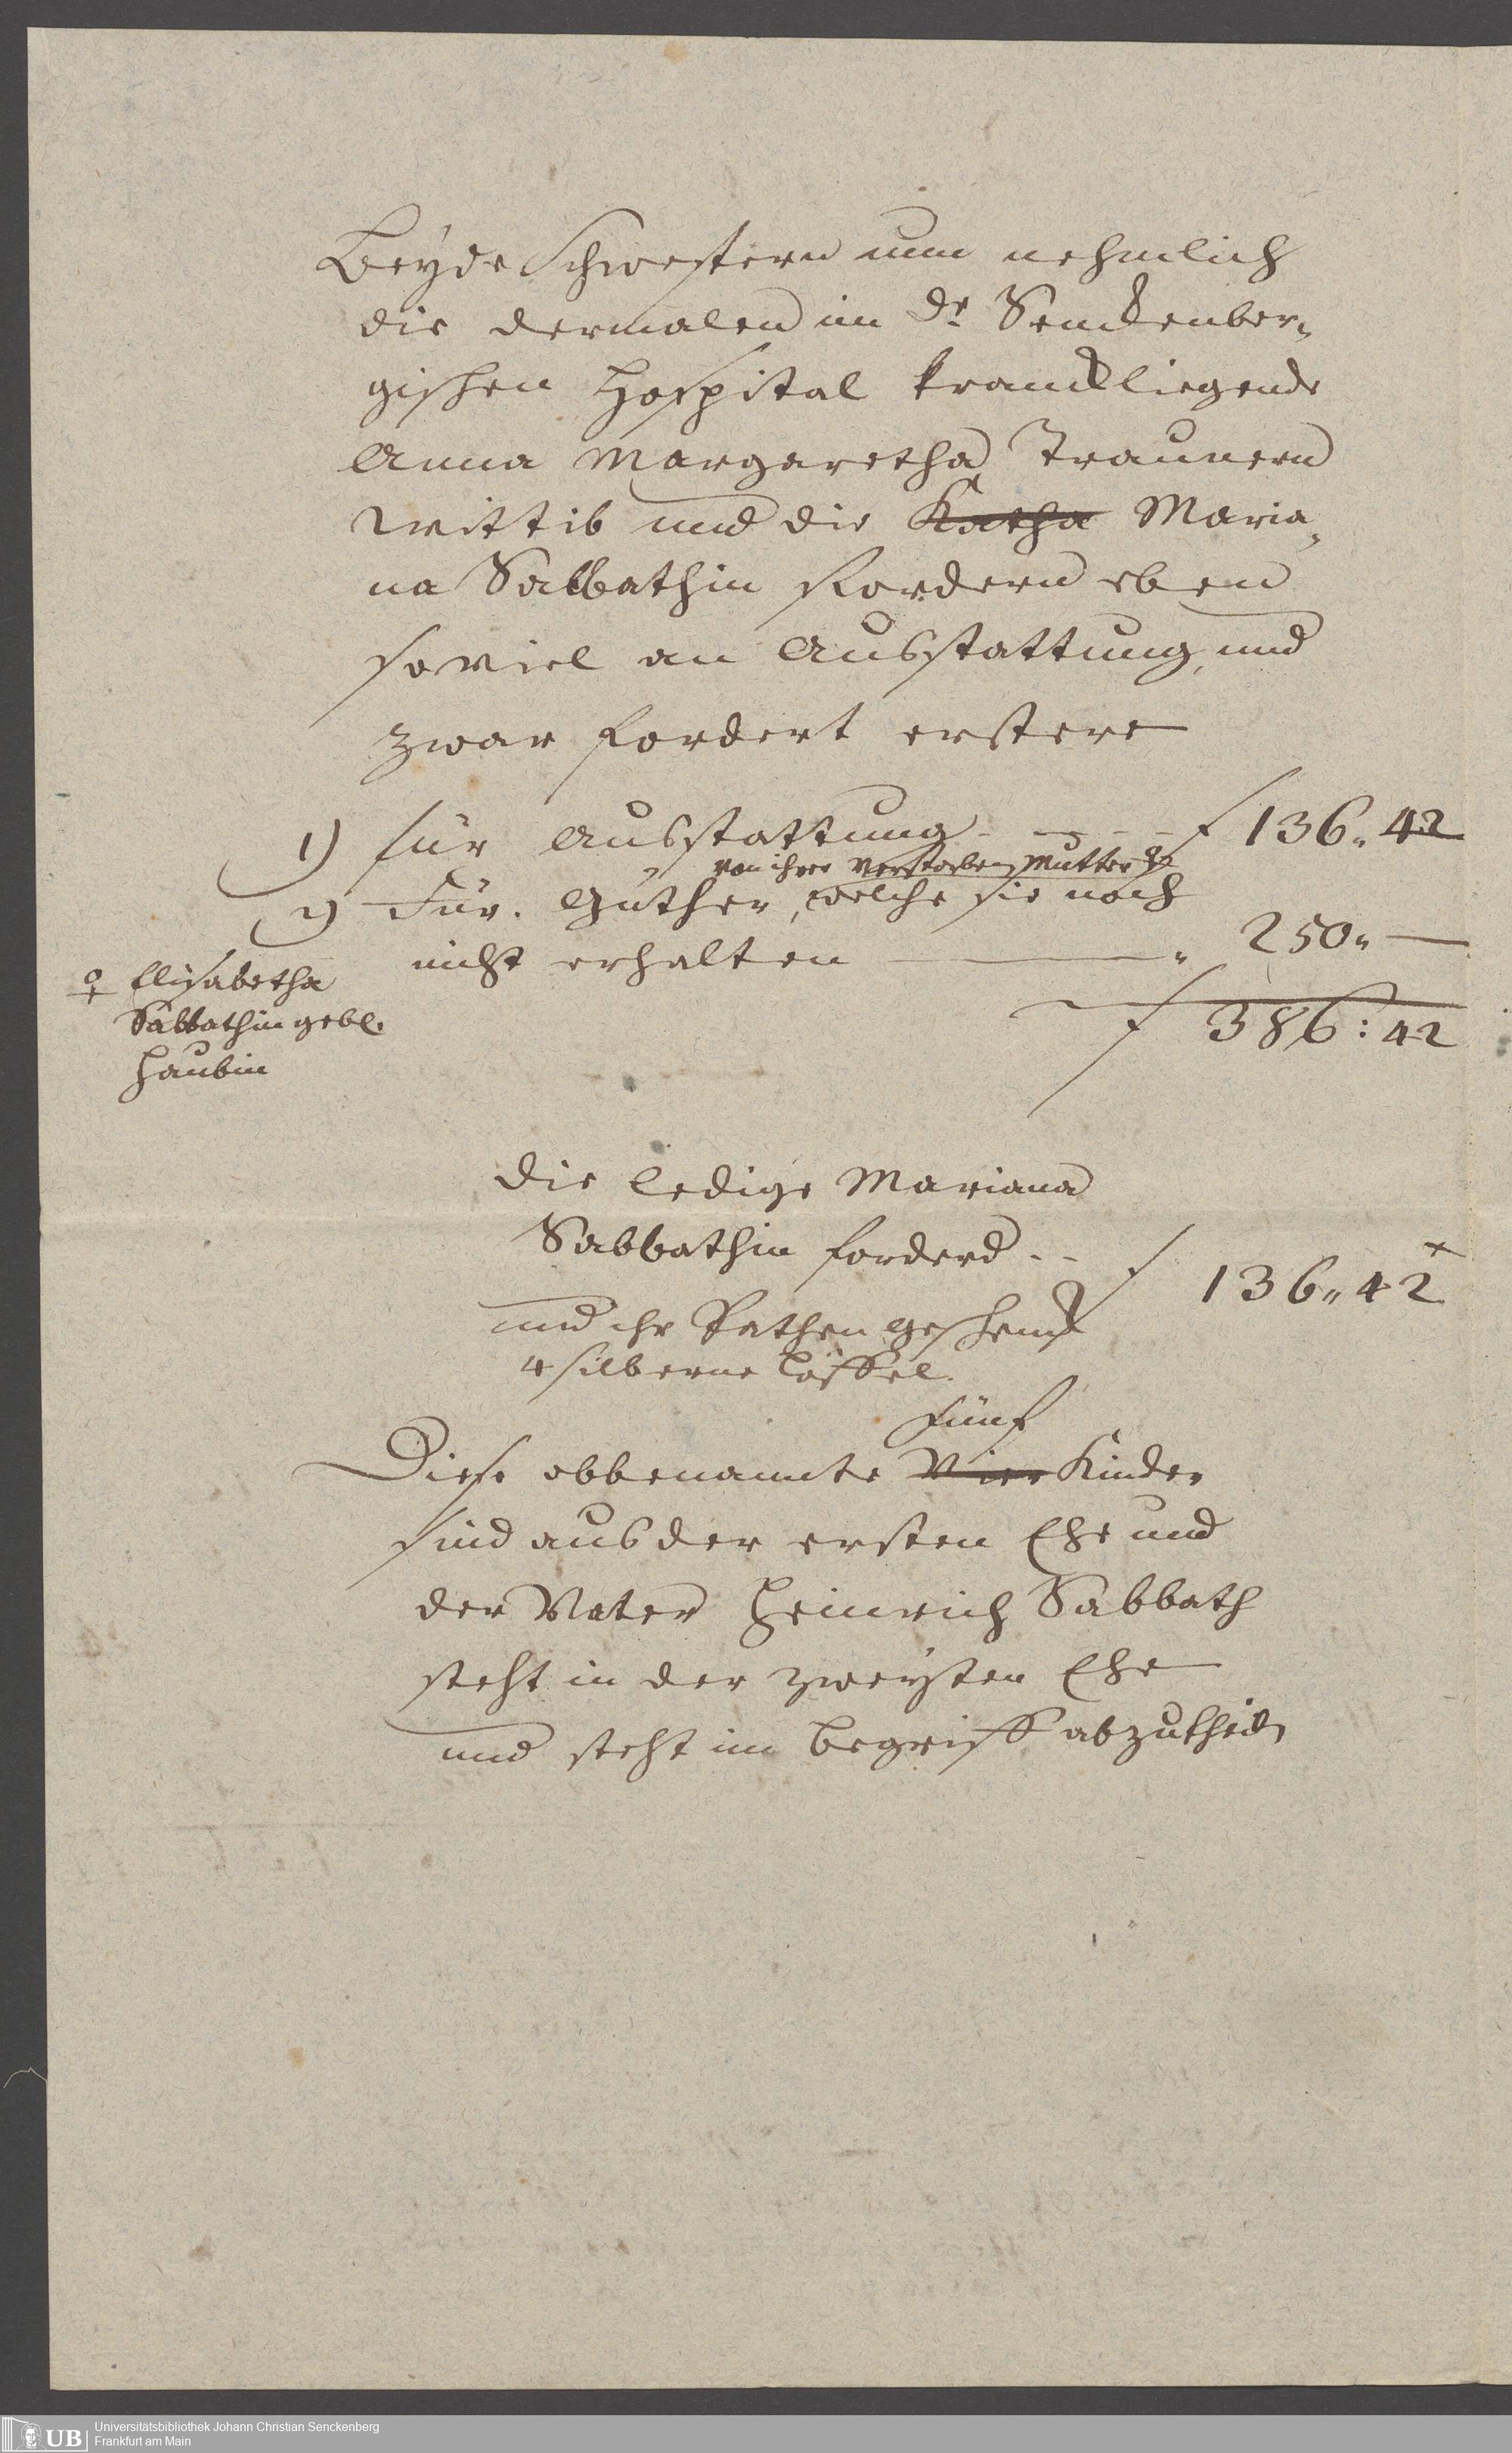 Beyde Schwestern nun nehmlich
die dermalen im Dr. Senckenber„
gischen Hospital kranckliegende
Anna Margaretha Traunern
Wittib und die Katha Maria„
na Sabbathin fordern eben
soviel an Ausstattung, und
zwar fordert erstere
1) für Ausstattung - - - - f 136„ 42
von ihrer verstorben Mutter ♀
2) Für Güther, welche sie noch
nicht erhalten — „ 250„ —
♀ Elisabetha
Sabbathin gebl.
Haubin
f 386: 42
Die ledige Mariana
Sabbathin forderd - - f 136„ 42 x
und ihr Pathen geschenck
4 silberne Löffel.
fünf
Diese obbenannte Vier Kinder
sind aus der ersten Ehe und
der Vater Heinrich Sabbath
steht in der zweyten Ehe
und steht im begriff abzutheiln
Universitätsbibliothek Johann Christian Senckenberg
Frankfurt am Main
UB